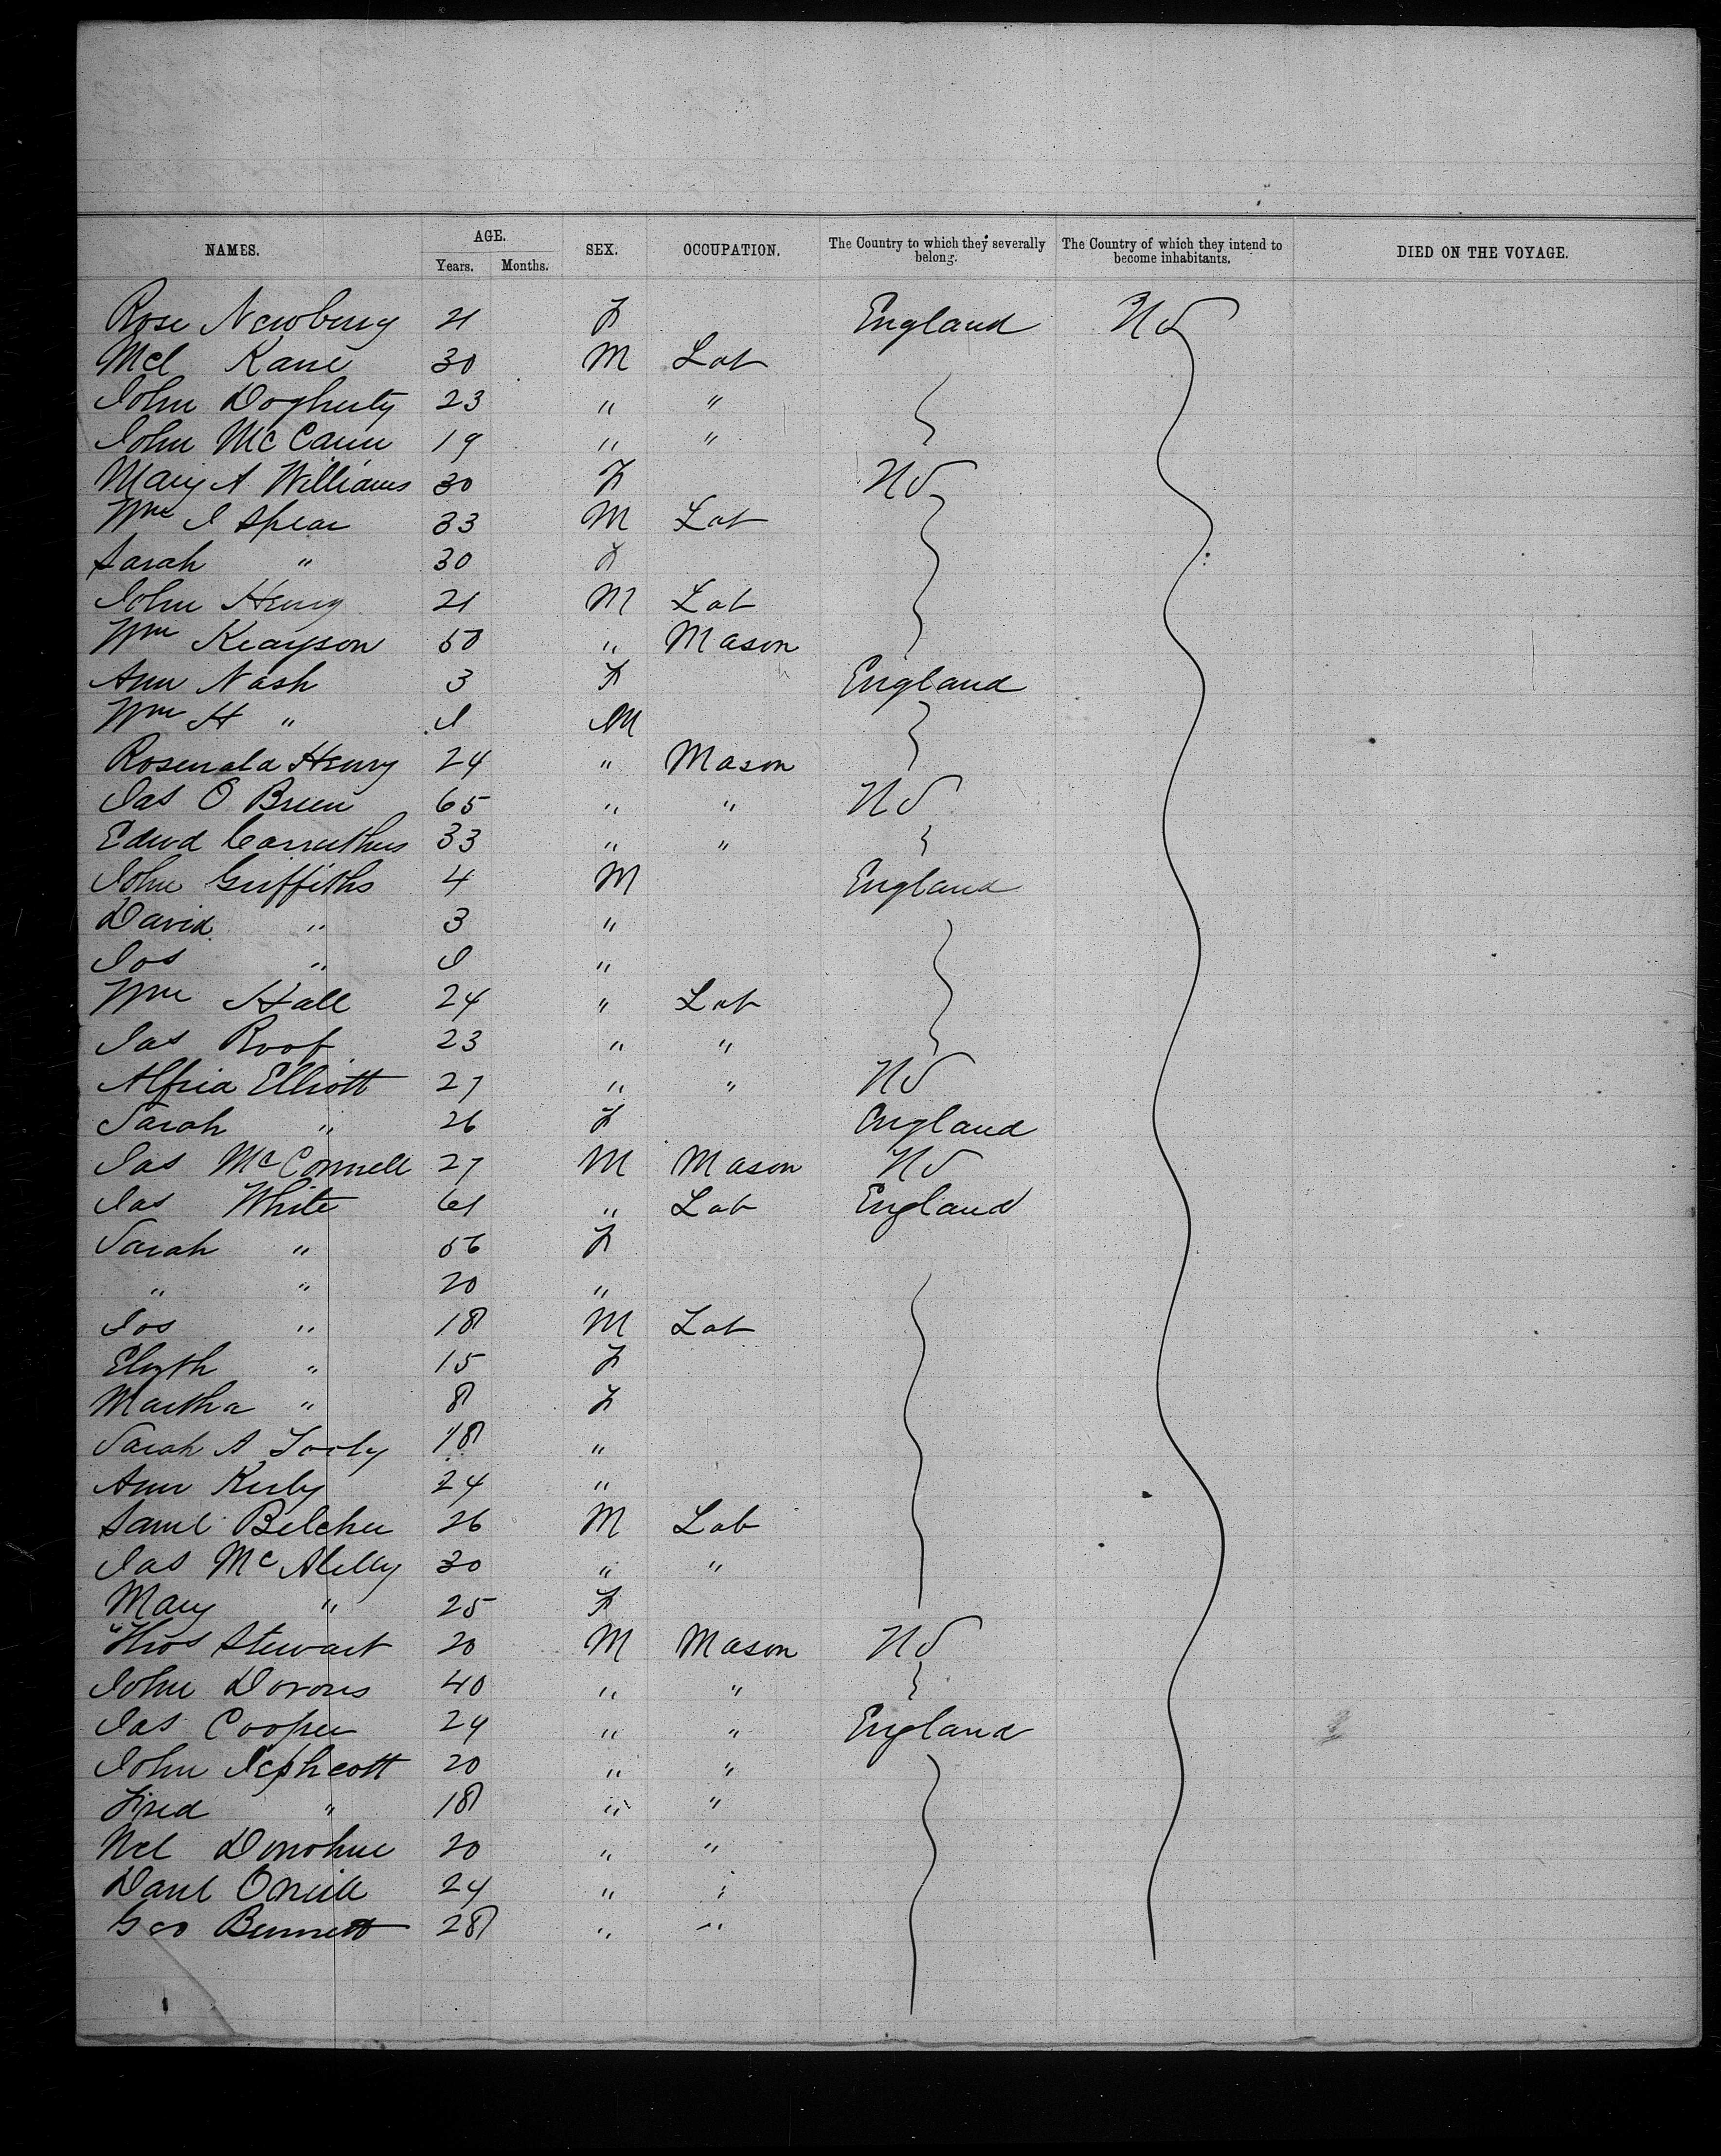 NAMES. AGE. SEX. OCCUPATION. The Country to which they severally belong. The Country of which they intend to become inhabitants. DIED ON THE VOYAGE.
Years. Months.
Rose Newberry 21 F England US
Mcl Kane 30 M Lab
John Dogherty 23 " "
John McCann 19 " "
Mary A Williams 30 F US
Wm J Spear 33 M Lab
Sarah " 30 F
John Henry 21 M Lab
Wm 50 " Mason
Ann Nash 3 F England
Wm H " I M
Henry 24 " Mason
Jas O Brien 65 " " US
Edwd Carruthers 33 " "
John Griffiths 4 M England
David " 3 "
Jos " I "
Wm Hall 24 " Lab
Jas Roof 23 " "
Elliott 27 " " US
Sarah " 26 F England
Jas McConnell 27 M Mason US
Jas White 61 " Lab England
Sarah " 56 F
" " 20 "
Jos " 18 M Lab
Elizth " 15 F
Martha " 8 F
Sarah A 18 "
Ann Kirby 24 "
Saml Belcher 26 M Lab
Jas 30 " "
Mary " 25 F
Thos Stewart 20 M Mason US
John 40 " "
Jas Cooper 24 " " England
John Jephcott 20 " "
Fred " 18 " "
Donohue 20 " "
Danl ONeill 24 " "
Geo Bennett 28 " "